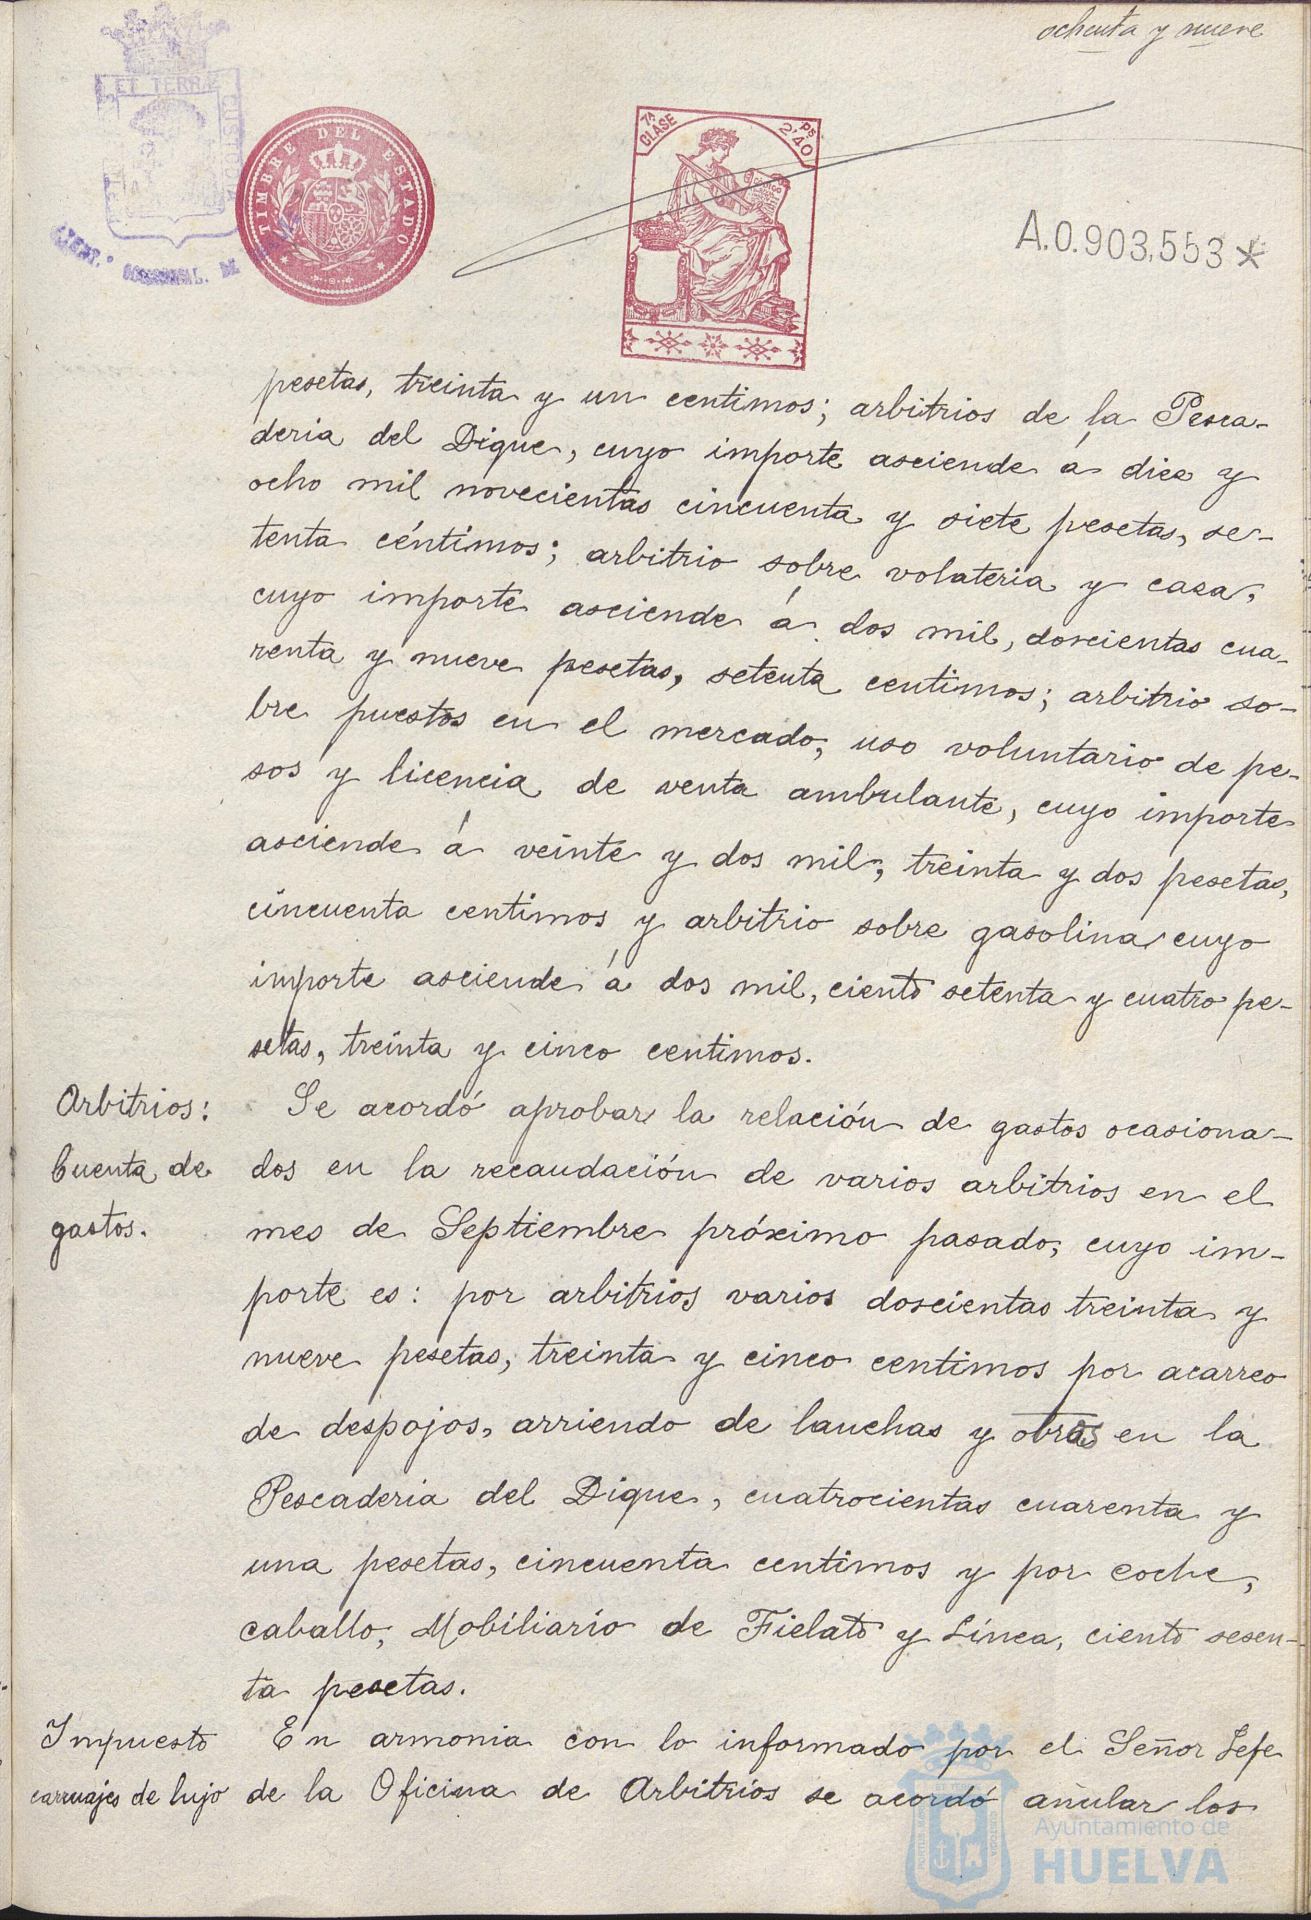 ochenta y nueve
ET TERRÆ CUSTODIA
AYUNT.
DE
TIMBRE DEL ESTADO
7ª CLASE
Ps 2'40
A.0.903,553*
pesetas, treinta y un centimos; arbitrios de la Pesca-
deria del Dique, cuyo importe asciende á diez y
ocho mil novecientas cincuenta y siete pesetas, se-
tenta céntimos; arbitrio sobre volateria y caza,
cuyo importe asciende á dos mil, doscientas cua-
renta y nueve pesetas, setenta centimos; arbitrio so-
bre puestos en el mercado, uso voluntario de pe-
sos y licencia de venta ambulante, cuyo importe
asciende á veinte y dos mil, treinta y dos pesetas,
cincuenta centimos y arbitrio sobre gasolina cuyo
importe asciende á dos mil, ciento setenta y cuatro pe-
setas, treinta y cinco centimos.
Arbitrios:
Cuenta de
gastos.
Se acordó aprobar la relación de gastos ocasiona-
dos en la recaudación de varios arbitrios en el
mes de Septiembre próximo pasado, cuyo im-
porte es: por arbitrios varios doscientas treinta y
nueve pesetas, treinta y cinco centimos por acarreo
de despojos, arriendo de lanchas y obras en la
Pescaderia del Dique, cuatrocientas cuarenta y
una pesetas, cincuenta centimos y por coche,
caballo, Mobiliario de Fielato y Línea, ciento sesen-
ta pesetas.
Impuesto
carruajes de lujo
En armonia con lo informado por el Señor Jefe
de la Oficina de Arbitrios se acordó anular los
Ayuntamiento de
HUELVA